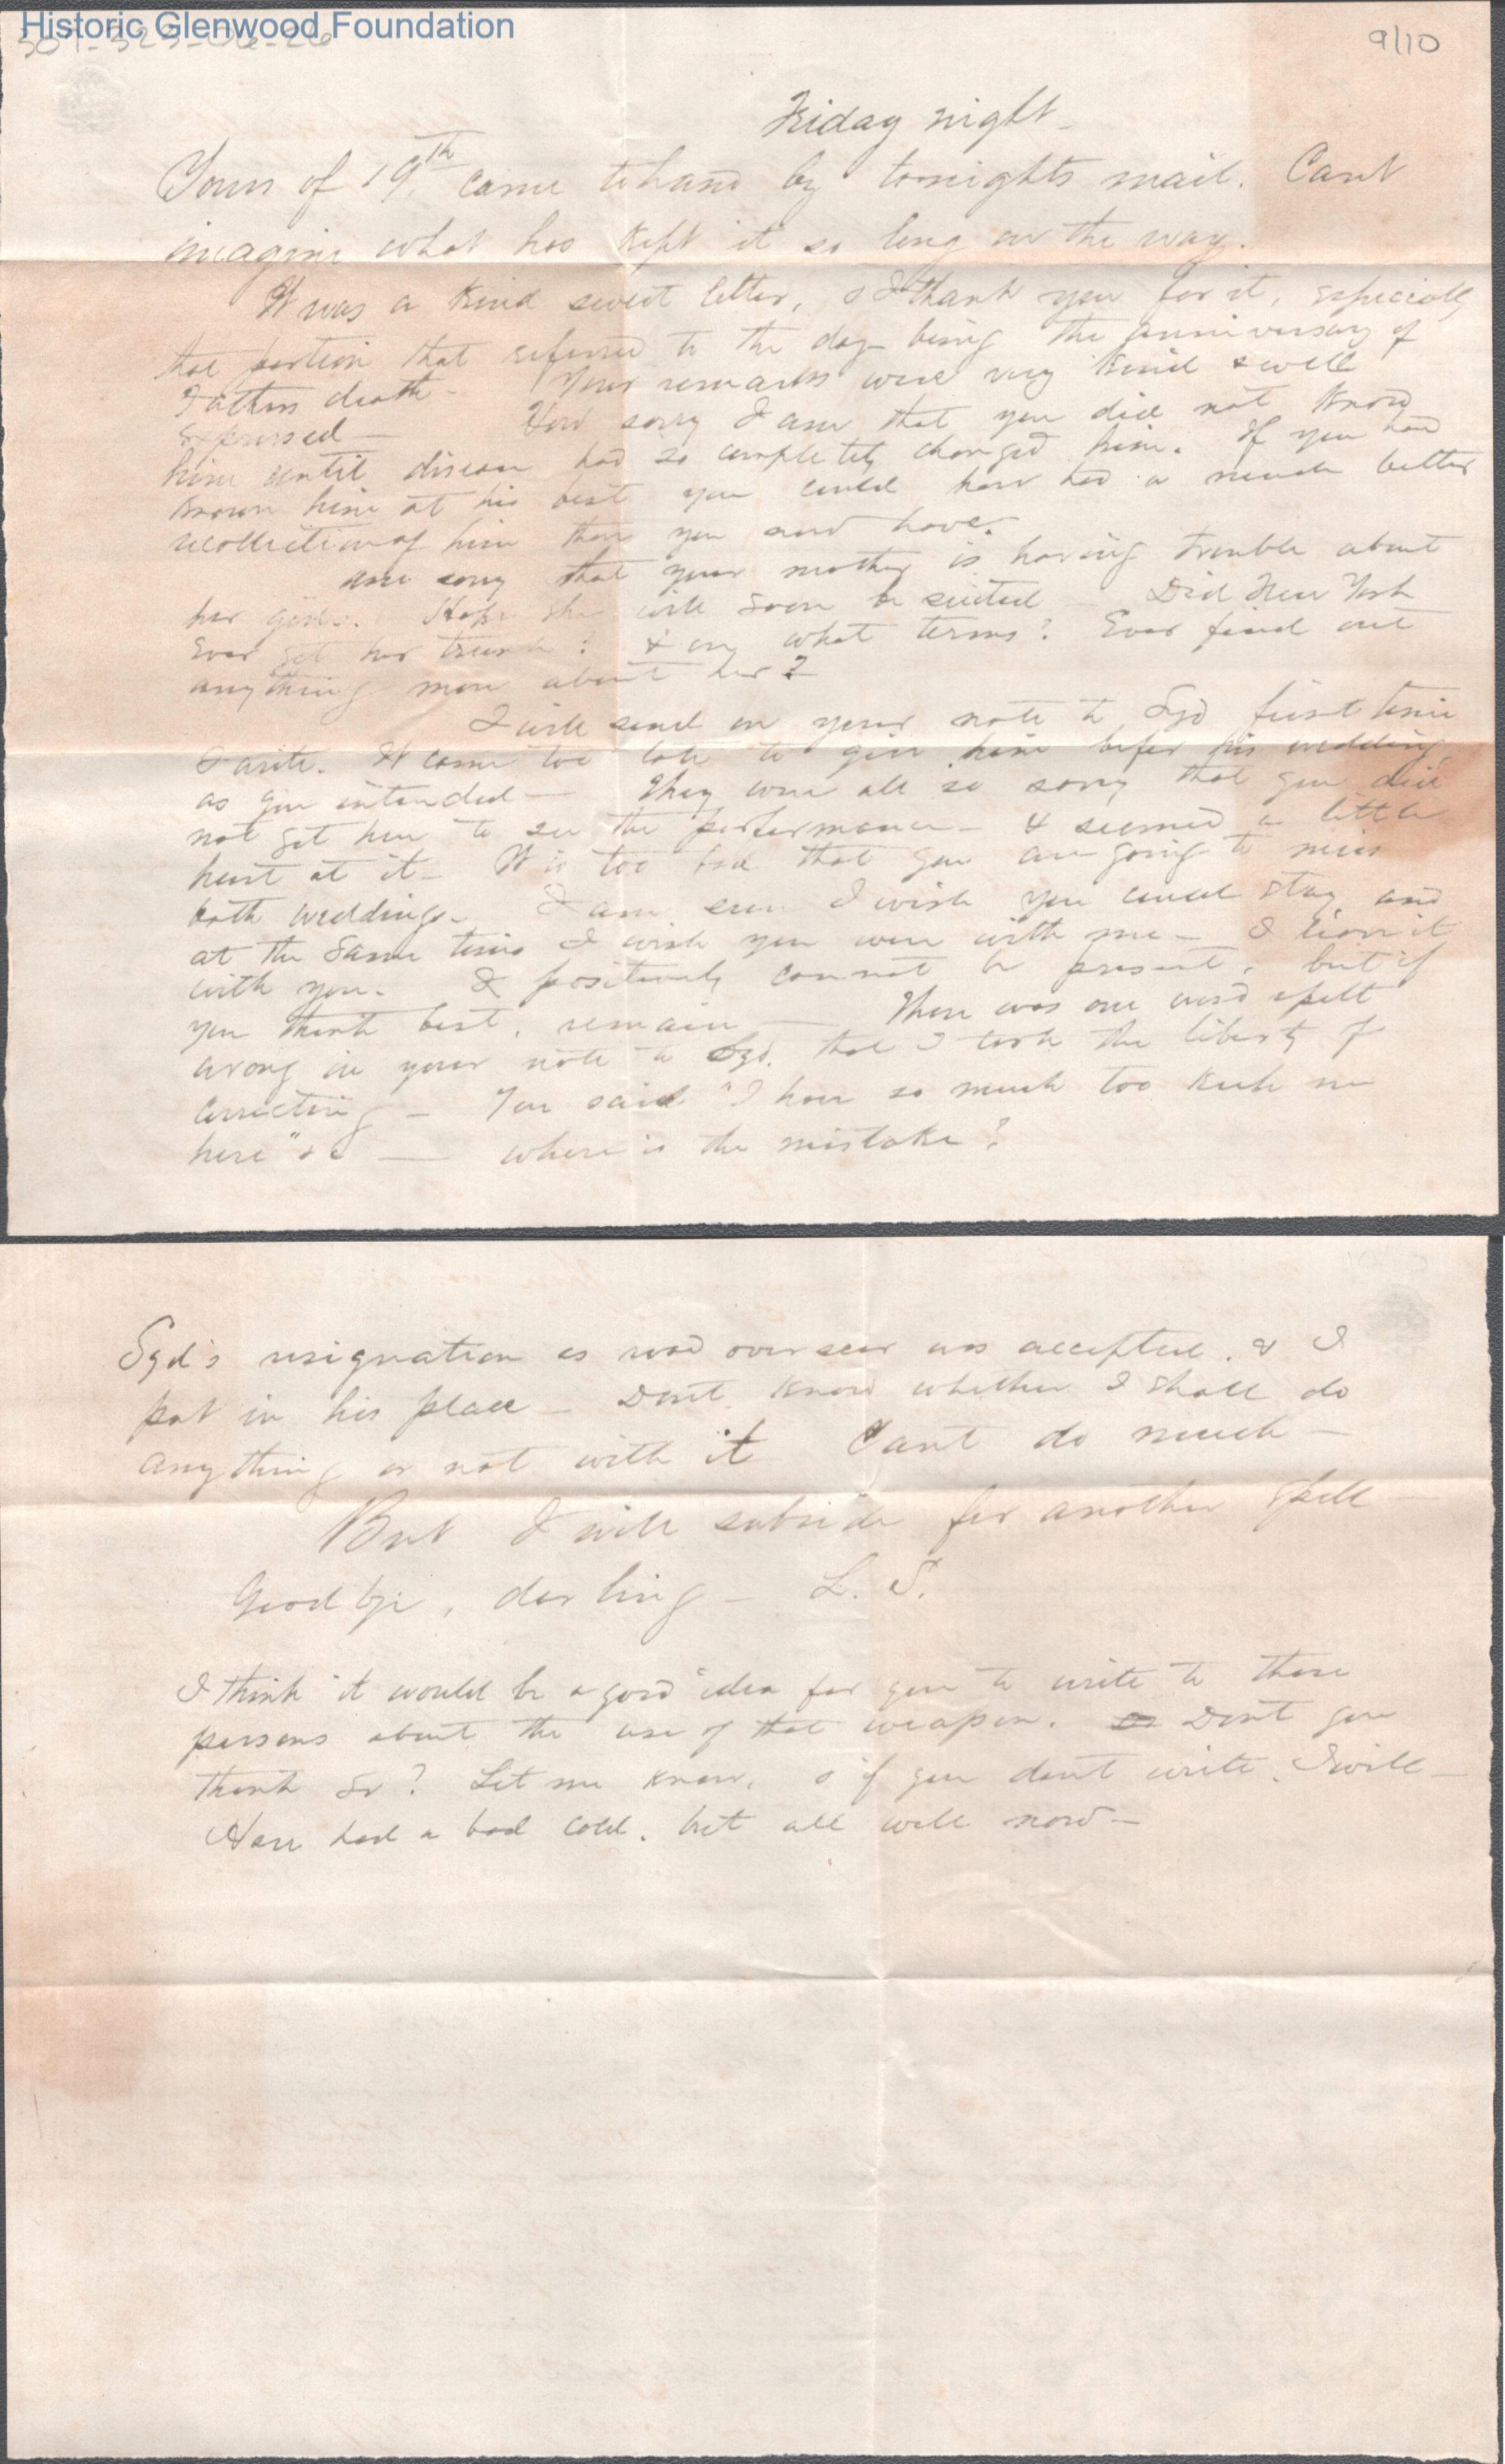 Historic Glenwood Foundation
9/10
Friday night -
Yours of 19th came to hand by tonights mail. Cant
imagine what has kept it so long on the way.
It was a kind sweet letter, & I thank you for it, especially
that portion that referred to the day being the anniversary of
Fathers death - Your remarks were very kind & well
expressed - How sorry I am that you did not know
him until disease had so completely changed him. If you had
known him at his best you could have had a much better
recollection of him than you now have.
Am sorry that your mother is having trouble about
her girls. Hope she will soon be suited - Did New York
Ever get her trunk? & on what terms? Ever find out
anything more about her?
I will send on your note to Syd first time
I write. It came too late to give him before his wedding
as you intended - They were all so sorry that you did
not get here to see the performance - & seemed a little
hurt at it - It is too bad that you are going to miss
both weddings - I am sure I wish you could stay and
at the same time I wish you were with me - I leave it
with you. I positively cannot be present, but if
you think best, remain - There was one word spelt
wrong in your note to Syd. that I took the liberty of
correcting - You said "I have so much too keep me
here" &c - where is the mistake?
Syd's resignation as road overseer was accepted, & I
put in his place - Dont know whether I shall do
anything or not with it Cant do much -
But I will subside for another spell -
Goodbye, darling - L. S.
I think it would be a good idea for you to write to those
persons about the use of that weapon. Dont you
think so? Let me know, & if you dont write, I will -
Have had a bad cold, but all well now -